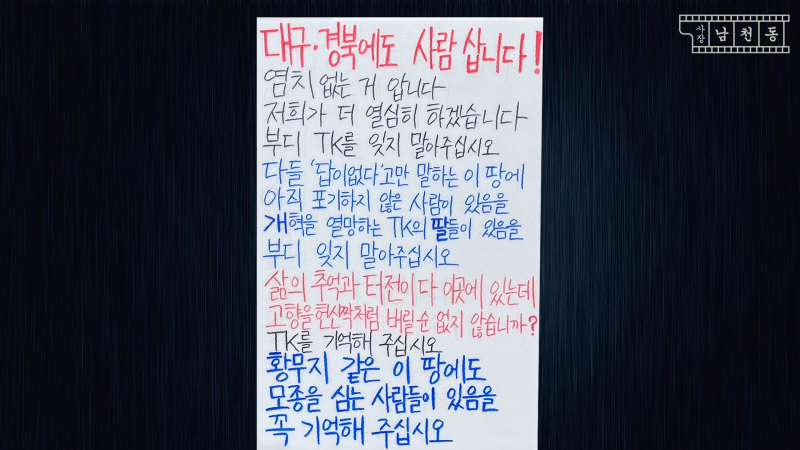 사장남천동
대구·경북에도 사람 삽니다!
염치 없는 거 압니다
저희가 더 열심히 하겠습니다
부디 TK를 잊지 말아주십시오
다들 '답이없다'고만 말하는 이 땅에
아직 포기하지 않은 사람이 있음을
개혁을 열망하는 TK의 딸들이 있음을
부디 잊지 말아주십시오
삶의 추억과 터전이 다 이곳에 있는데
고향을 헌신짝처럼 버릴순 없지 않습니까?
TK를 기억해 주십시오
황무지 같은 이 땅에도
모종을 심는 사람들이 있음을
꼭 기억해 주십시오